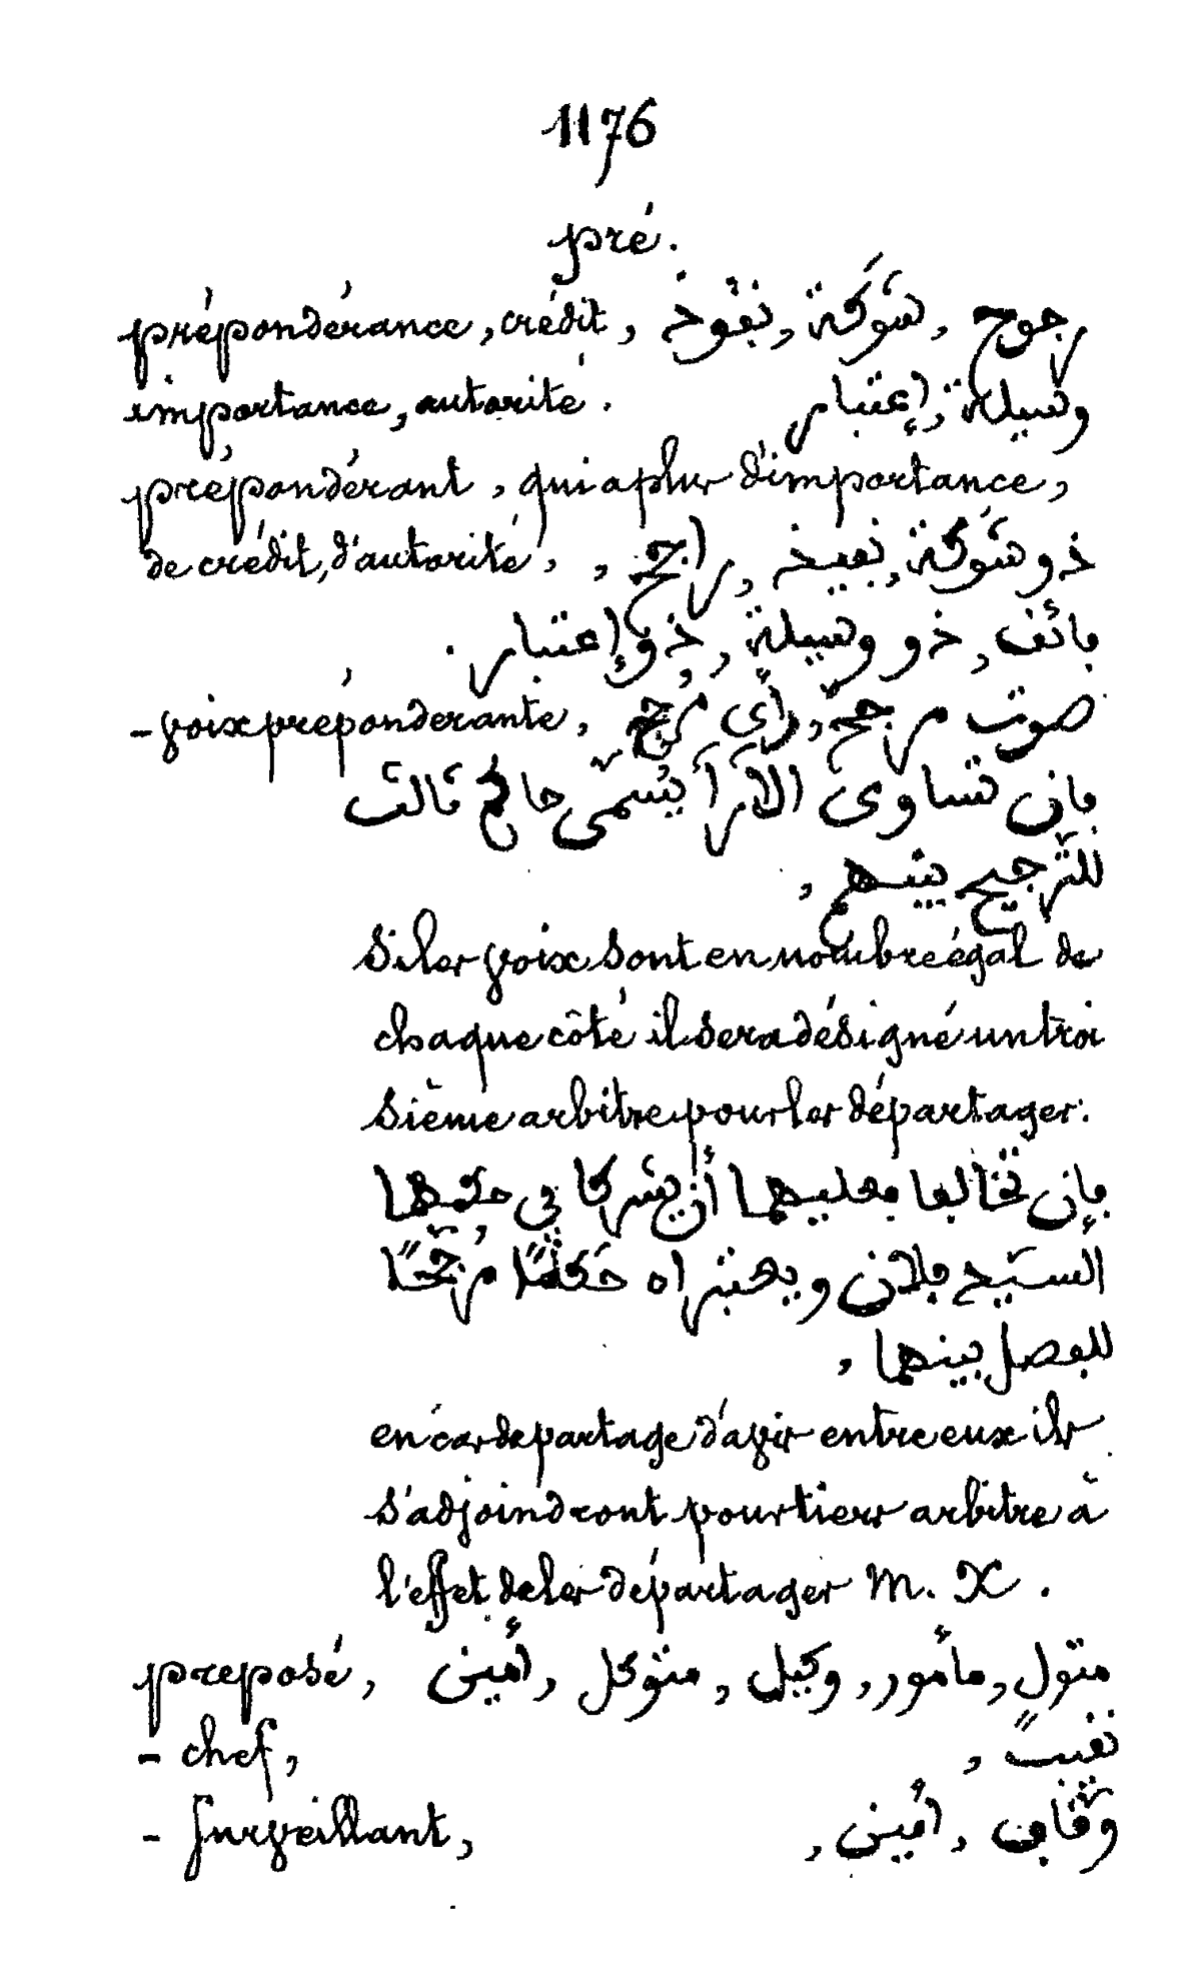 1176
pré.
prépondérance, crédit, رجوح, شَوكة, نفوذ
importance, autorité. وسيلة, إعتبار
prépondérant, qui a plus d'importance,
de crédit, d'autorité, ذو شَوكة, نفيذ, راجح,
فائف, ذو وسيلة, ذو إعتبار.
- voix prépondérante, صوت مرجح, رأي مُرجح
فإن تساوى الآرآء يُسمّى حاكم ثالث
للتّرجيح بينهم,
Si les voix sont en nombre égal de
chaque côté il sera désigné un troi
sième arbitre pour les départager.
فإن تخالفا فعليهما أن يشركا في حكمهما
السيّد فلان ويعتبراه حَكَمًا مُرجّحًا
للفصل بينهما,
en cas de partage d'avis entre eux ils
s'adjoindront pour tiers arbitre à
l'effet de les départager M. X.
preposé, متولٍ, مأمور, وكيل, متوكل, أمين
- chef, نقيب,
- Surveillant, وقّاف, أمين,